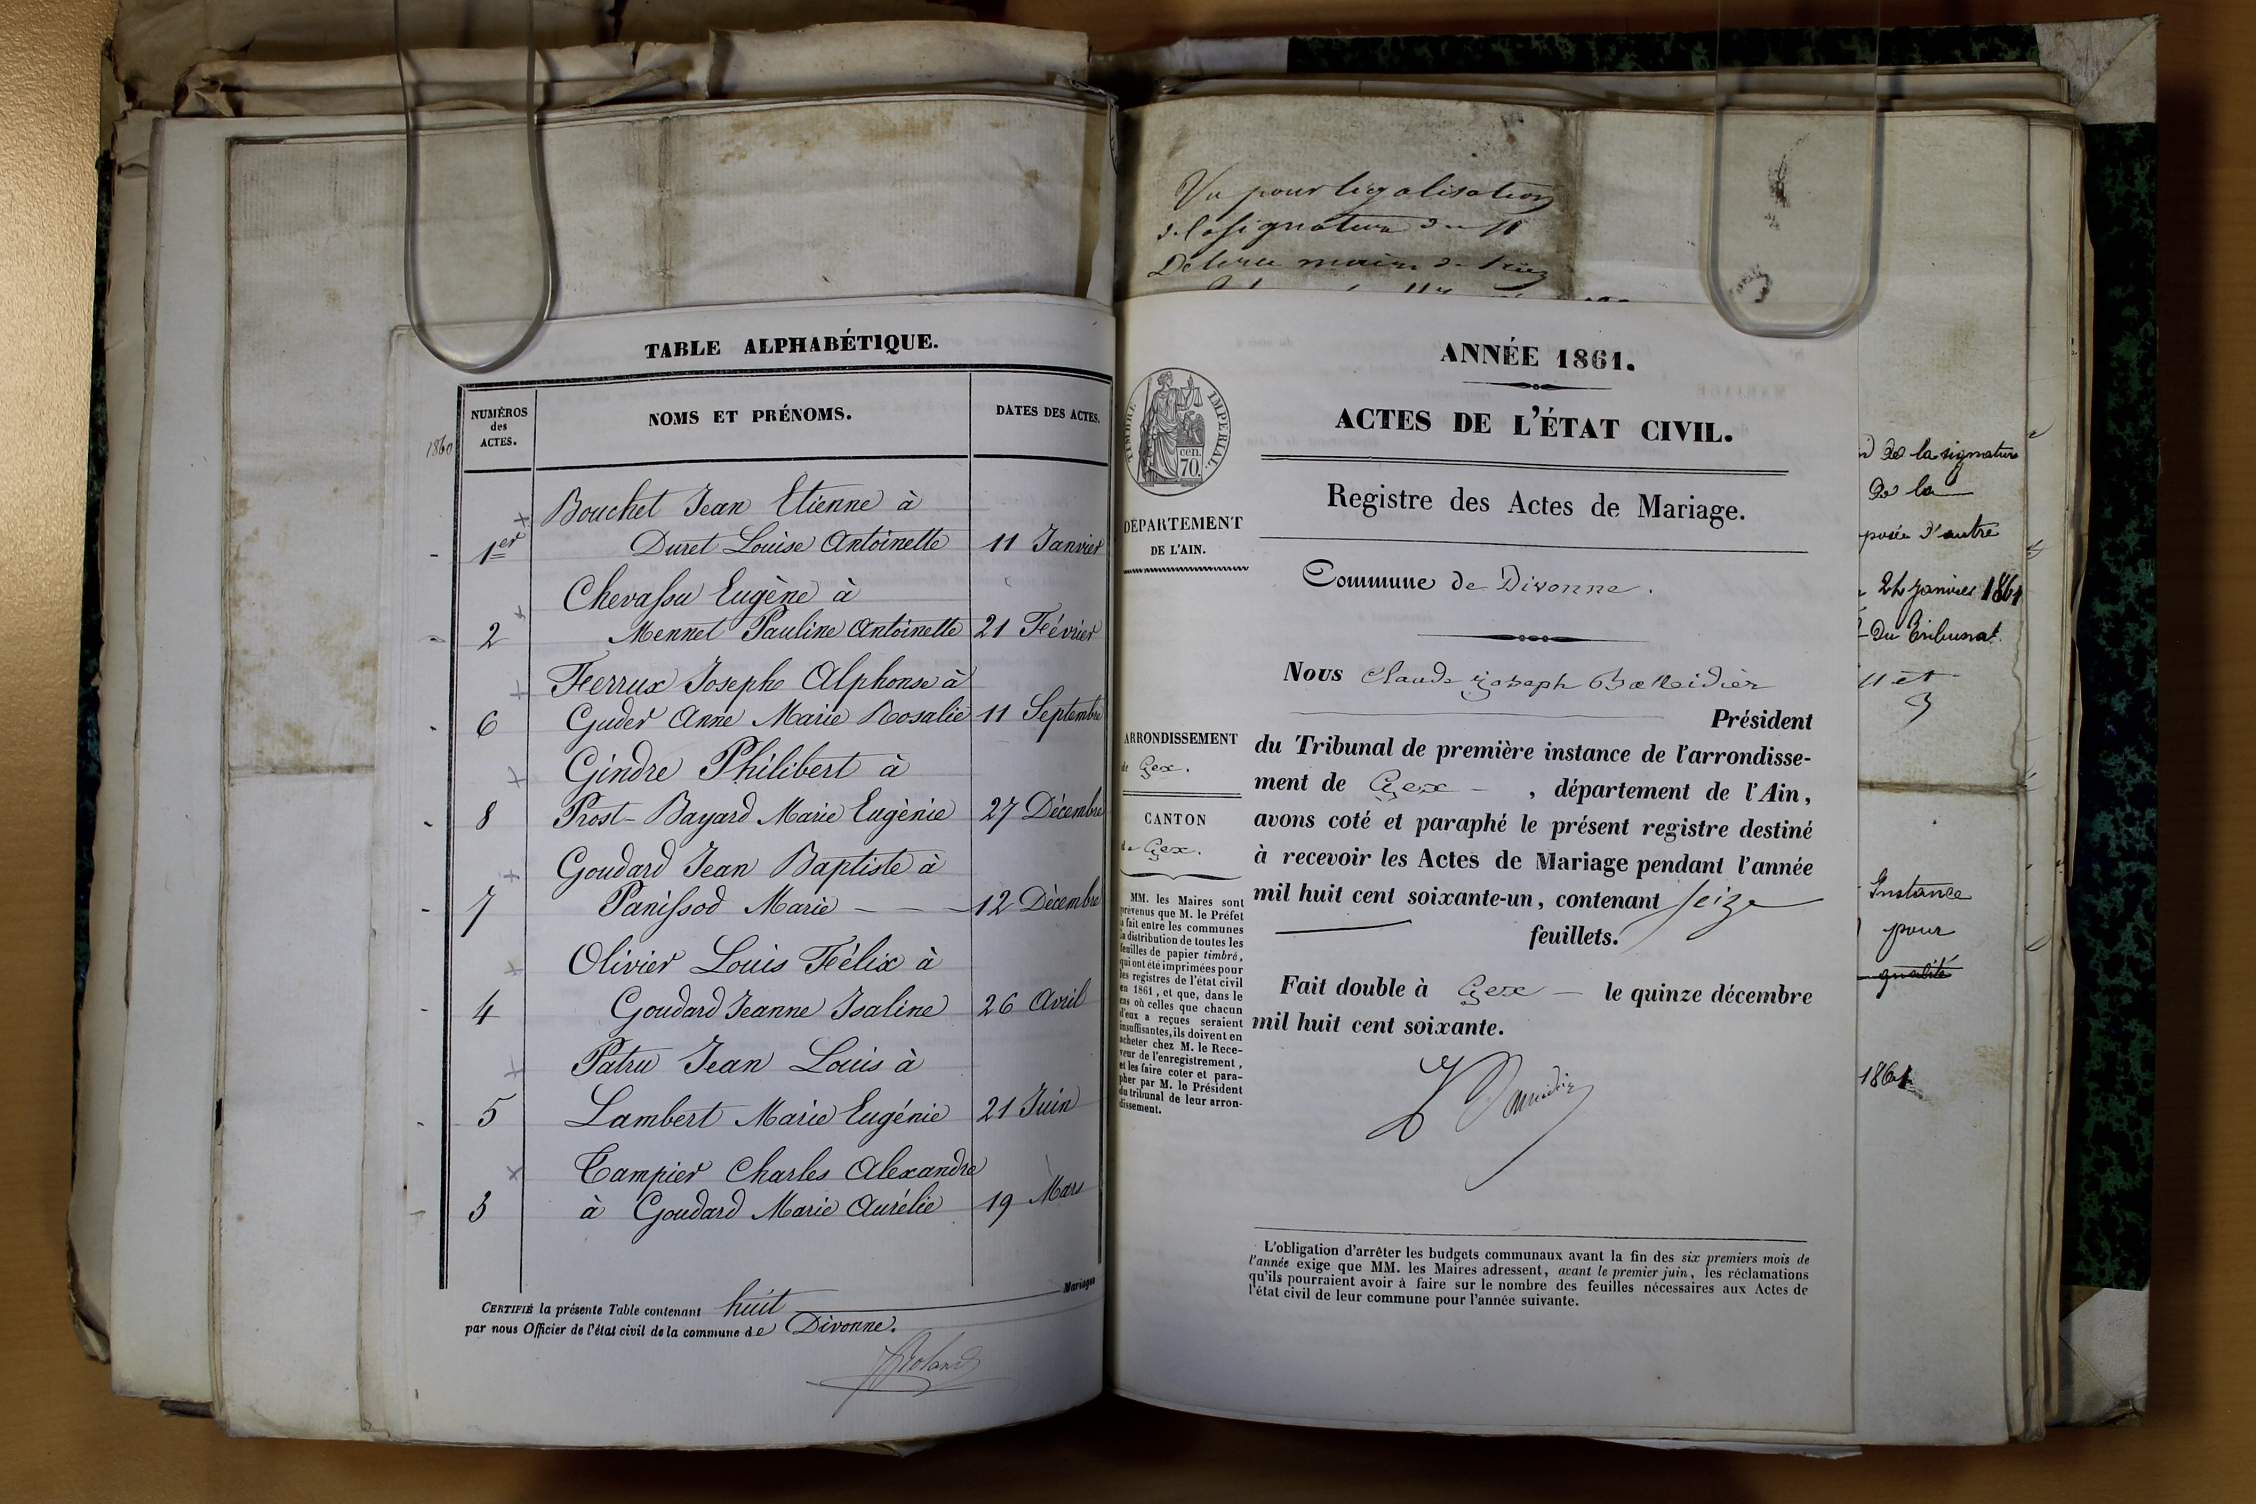 TABLE ALPHABÉTIQUE.
1860
NUMÉROS
des
ACTES.
NOMS ET PRÉNOMS.
DATES DES ACTES.
Bouchet Jean Etienne à
1er Duret Louise Antoinette 11 Janvier
Chevassu Eugène à
2 Mennet Pauline Antoinette 21 Février
Ferrux Joseph Alphonse à
6 Guder Anne Marie Rosalie 11 Septembre
Gindre Philibert à
8 Prost-Bayard Marie Eugènie 27 Décembre
Goudard Jean Baptiste à
7 Panissod Marie 12 Décembre
Olivier Louis Félix à
4 Goudard Jeanne Isaline 26 Avril
Patru Jean Louis à
5 Lambert Marie Eugénie 21 Juin
Tampier Charles Alexandre
3 à Goudard Marie Aurélie 19 Mars
CERTIFIÉ la présente Table contenant huit Mariages
par nous Officier de l'état civil de la commune de Divonne.
Vu pour légalisation
de la signature du
maire de
ANNÉE 1861.
ACTES DE L'ÉTAT CIVIL.
Registre des Actes de Mariage.
TIMBRE IMPÉRIAL.
70 cen.
DÉPARTEMENT
DE L'AIN.
ARRONDISSEMENT
de Gex.
CANTON
de Gex.
MM. les Maires sont
prévenus que M. le Préfet
a fait entre les communes
la distribution de toutes les
feuilles de papier timbré,
qui ont été imprimées pour
les registres de l'état civil
en 1861, et que, dans le
cas où celles que chacun
d'eux a reçues seraient
insuffisantes, ils doivent en
acheter chez M. le Rece-
veur de l'enregistrement,
et les faire coter et para-
pher par M. le Président
du tribunal de leur arron-
dissement.
Commune de Divonne.
Nous Claude Joseph
Président
du Tribunal de première instance de l'arrondisse-
ment de Gex , département de l'Ain,
avons coté et paraphé le présent registre destiné
à recevoir les Actes de Mariage pendant l'année
mil huit cent soixante-un, contenant seize
feuillets.
Fait double à Gex le quinze décembre
mil huit cent soixante.
L'obligation d'arrêter les budgets communaux avant la fin des six premiers mois de
l'année exige que MM. les Maires adressent, avant le premier juin, les réclamations
qu'ils pourraient avoir à faire sur le nombre des feuilles nécessaires aux Actes de
l'état civil de leur commune pour l'année suivante.
de la signature
de la
posée d'autre
24 Janvier 1861
du Tribunal
et
Instance
pour
qualité
1861